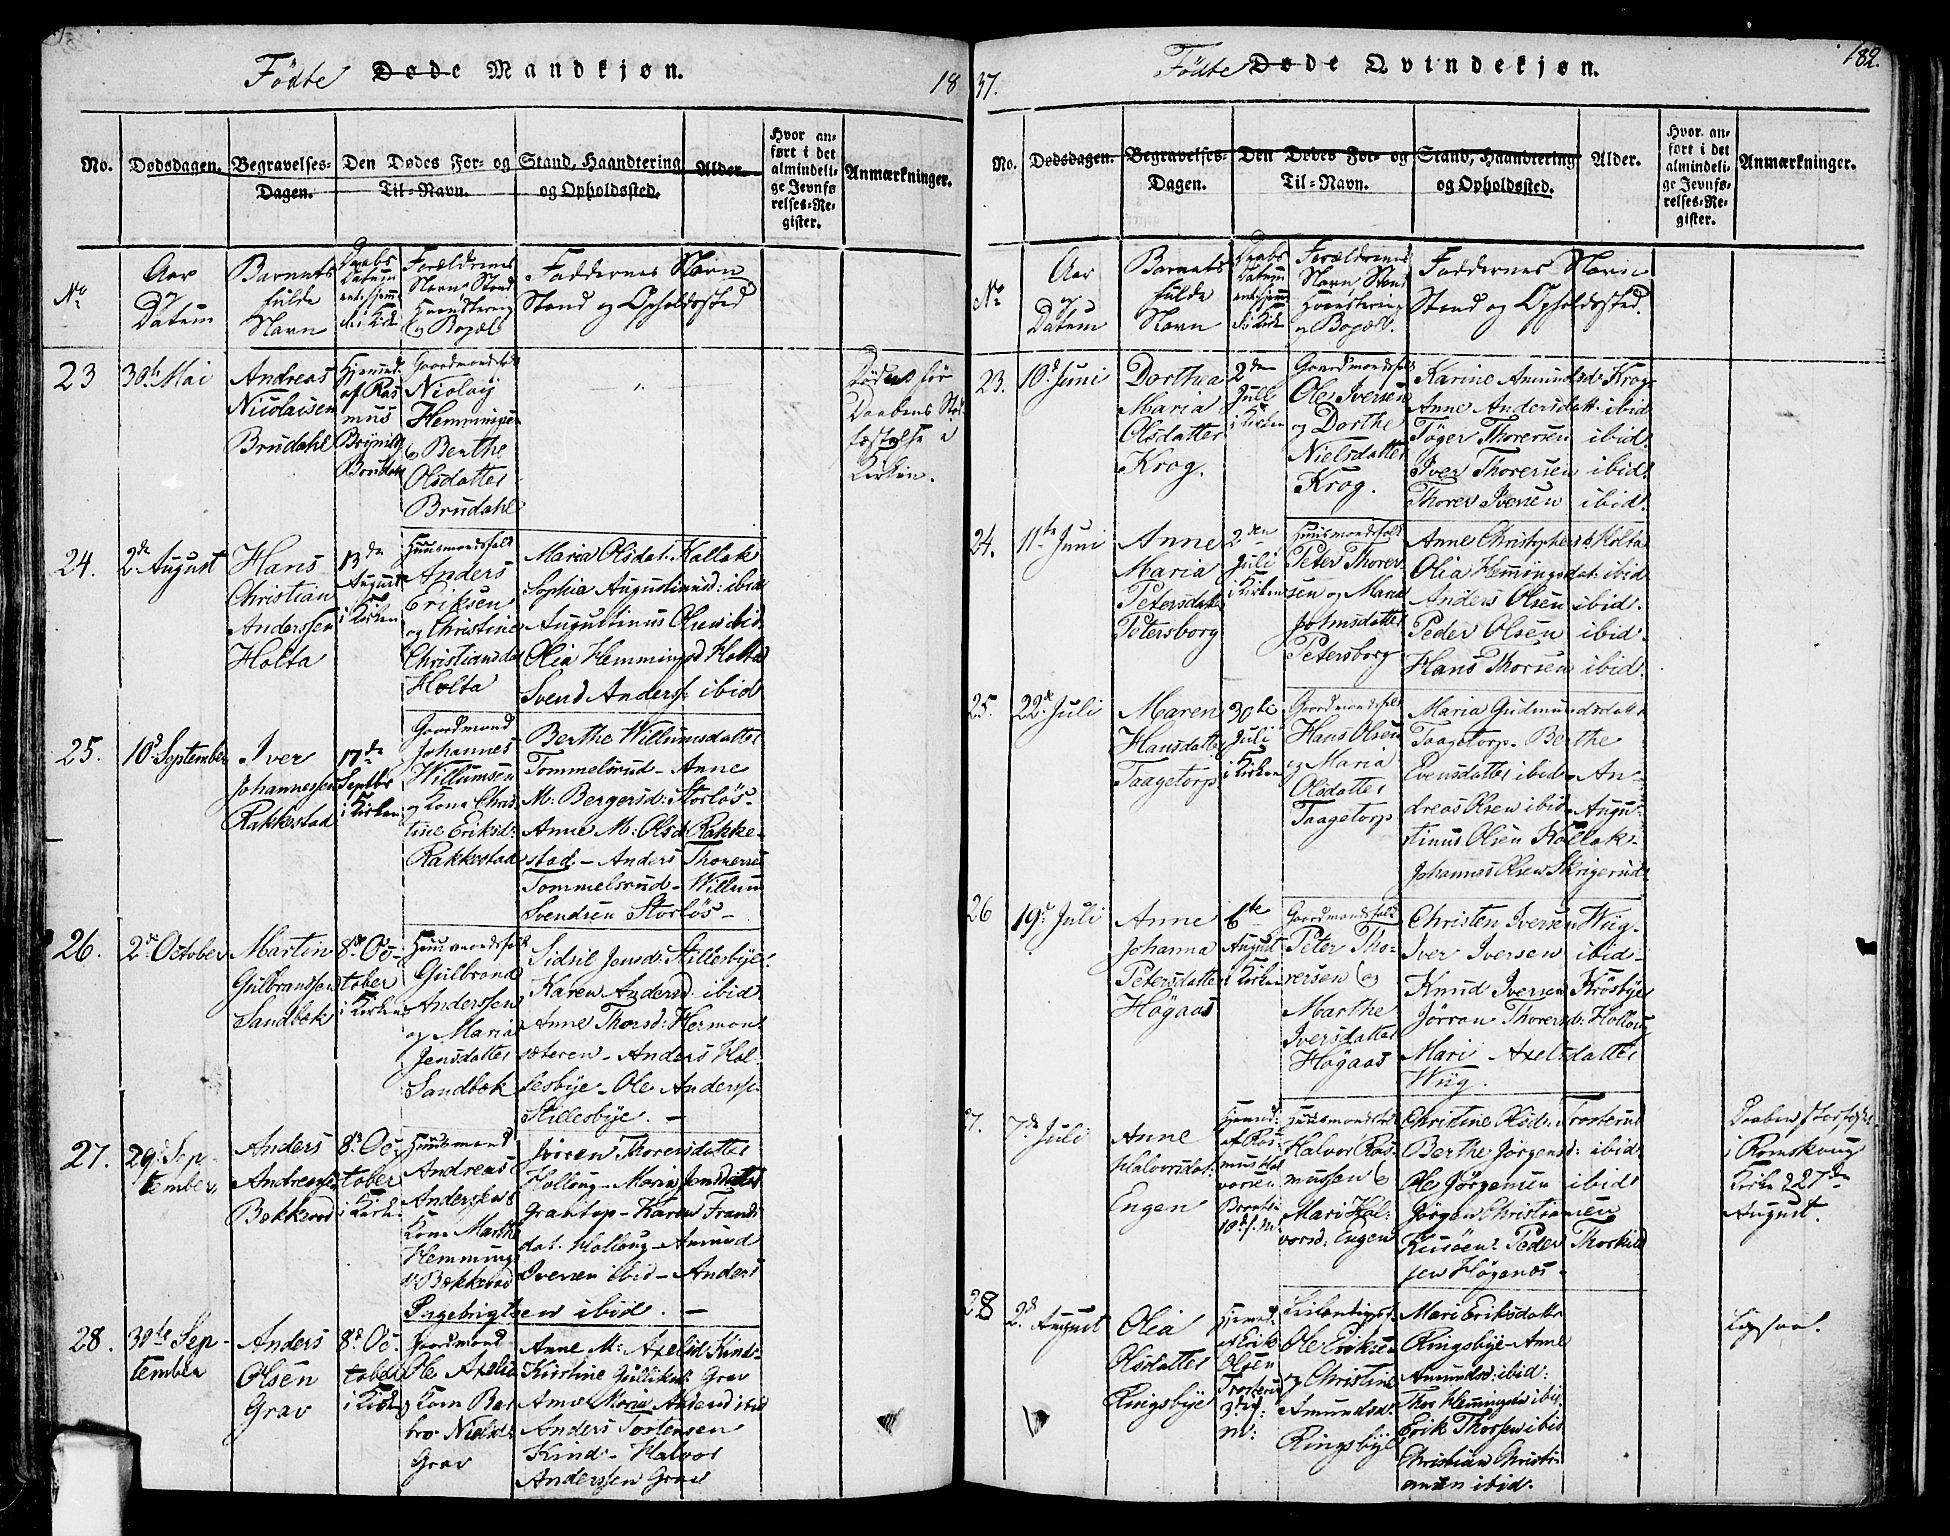 Födte Døde Mandkjøn. 18
No. Dødsdagen. Begravelses-Dagen. Den Dødes For- og Til-Navn. Stand, Haandtering og Opholdssted. Alder. Hvor anført i det almindelige Jevnførelses-Register. Anmærkninger.
No
Aar
og
Datum
Barnets
fulde
Navn
Daabs
Datum
Forældrenes
Navn, Stand
Haandtering
og Bopæl
Faddernes Navn
Stand og Opholdssted
23
30te Mai
Andreas
Nicolaisen
Brudahl
Hjemmed.
af Ras
mus
Brudahl
Gaardmandsfolk
Nicolaij
Hemmingsen
og Berthe
Olsdatter
Brudahl
Døde før
Daabens Stad
fæstelse i
Kirken.
24.
2de August
Hans
Christian
Anderssen
Holta
13de
August
i Kirken
Huusmandsfolk
Anders
Eriksen
og Christine
Christiansda
Holta
Maria Olsdat: Kallak
Sophia Augustinusd: ibid
Augustinus Olsen ibid
Olia Hemmingsd Holta
Svend Anderss: ibid
25.
10d September
Iver
Johannessen
Rakkestad
17de
Septbr
i Kirken
Gaardmand
Johannes
Willumsen
og Kone Chris
tine Eriksd:
Rakkestad
Berthe Willumsdatter
Tommelsrud - Anne
M: Bergersd: Storløs-
Anne M: Olsd Rakke-
stad - Anders Thoresen
Tommelsrud - Willum
Svendsen Storløs -
26.
2de October
Martin
Gulbranssen
Sandbæk
8de Oc-
tober
i Kirken
Huusmandsfolk
Gulbrand
Anderssen
og Maria
Jensdatter
Sandbæk
Sidsil Jonsd: Stillesbye
Karen Andersd: ibid
Anne Thorsd: Herman
sæteren - Anders Hal
lesbye - Ole Anderss-
Stillesbye. -
27.
29d Sep-
tember
Anders
Andreassen
Bekkevad
8de Oc-
tober
i Kirk:
Huusmand
Andreas
Anderssen
Kone Marthe
Hemmings
d: Bekkevad
Jvoren Thorersdatter
Hollong - Maria Jensdatter
Grantop - Karen Frands
dat. Hollong - Amund
Iversen ibid - Anders
Ingebrigtsen ibid. -
28.
30te Sep-
tember
Anders
Olsen
Grav
8de Oc-
tober
i Kirk
Gaardmand
Ole Axelsen
og Kone Bar
bro Nielsd
Grav
Anne M: Axelsd: Kind-
Kirstine Gulliksd Grav
Anne Maria Andersd ibid
Anders Torstensen
Kind - Halvor
Anderssen Grav
37. Födte Døde Qvindekjøn. 182.
No. Dødsdagen. Begravelses-Dagen. Den Dødes For- og Til-Navn. Stand, Haandtering og Opholdssted. Alder. Hvor anført i det almindelige Jevnførelses-Register. Anmærkninger.
No
Aar
og
Datum
Barnets
fulde
Navn
Daabs
Datum
Forældrenes
Navn, Stand
Haandtering
og Bopæl.
Faddernes Navn
Stand og Opholdssted.
23.
10d Juni
Dorthea
Maria
Olsdatter
Krog.
2den
Juli
i Kirken
Gaardmandsfolk
Ole Iversen
og Dorthe
Nielsdatter
Krog.
Karine Amundsd: Krog
Anne Andersdatt: ibid
Töger Thorersen ibid:
Iver Thorersen ibid:
Thorer Iversen ibid:
24.
11te Juni
Anne
Maria
Petersdatter
Petersborg
2den
Juli
i Kirken
Huusmandsfolk
Peter Thorer
sen og Maria
Johnsdatter
Petersborg
Anne Christophersd: Holta
Olia Hemmingsdat: ibid
Anders Olsen ibid.
Peder Olsen ibid.
Hans Thorsen ibid.
25.
22de Juli
Maren
Hansdatter
Taagetorp
30te
Juli
i Kirken
Gaardmandsfolk
Hans Olsen
og Maria
Olsdatter
Taagetorp
Maria Gudmundsdatter
Taagetorp - Berthe
Evensdatter ibid - An-
dreas Olsen ibid - Augu-
stinus Olsen Kallak -
Johannes Olsen Skrigerud
26
19d Juli
Anne
Johanna
Petersdatter
Högaas
6te
August
i Kirken
Gaardmandsfolk
Peter Tho-
rersen og
Marthe
Iversdatter
Högaas
Christen Iversen Wiig-
Iver Iversen ibid-
Knud Iversen Krösbye
Jörran Thorersd: Hollong
Mari Axelsdatter
Wiig.
7.
7de Juli
Anne
Halvorsdat:
Engen
Hjemmed:
af Ras-
mus Hal
vorsen
Huusmandsfolk
Halvor Ras
mussen og
Mari Hal-
vorsd: Engen
Christine Olsd: Trosterud
Berthe Jörgensd: ibid:
Ole Jörgensen ibid:
Jörgen Christiansen
Peder Thorkild
sen Högenæs -
Daaben stadfæstet
i Romskoug
Kirke 27de
August.
28
2d August
Olia
Olsdatter
Ringsbye
Hjemmed.
af Erik
Olsen
Trosterud
Ole Eriksen
og Christine
Amundsd:
Ringsbye
Mari Eriksdatter
Ringsbye - Anne
Amundsd: ibid:
Thor Hemmingsen ibid
Erik Thorsen ibid
Christian Christi-
ansen ibid.